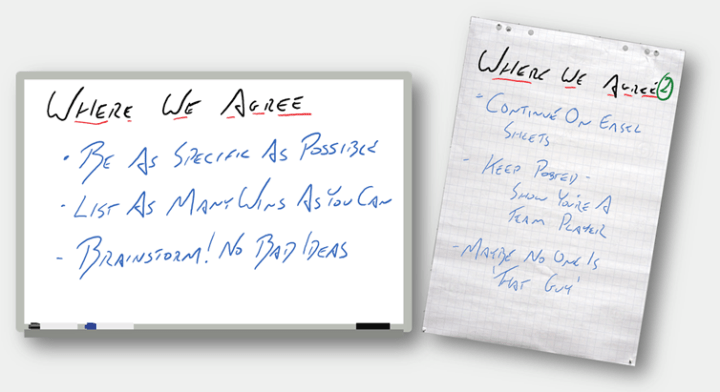 WHERE WE AGREE
• BE AS SPECIFIC AS POSSIBLE
• LIST AS MANY WINS AS YOU CAN
- BRAINSTORM! NO BAD IDEAS
WHERE WE AGREE 2
- CONTINUE ON EASEL
SHEETS
- KEEP POSTED -
SHOW YOU'RE A
TEAM PLAYER
- MAYBE NO ONE IS
'THAT GUY'